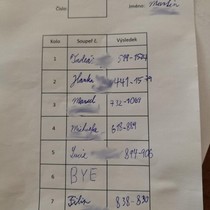 Číslo: Jméno: Martin
Kolo Soupeř č. Výsledek
1 Lukáš
2 Hanka 441-1579
3 Marcel 712-1001
4 Michala 818-889
5 Lucie 819-905
6 BYE
7 Filip 838-890